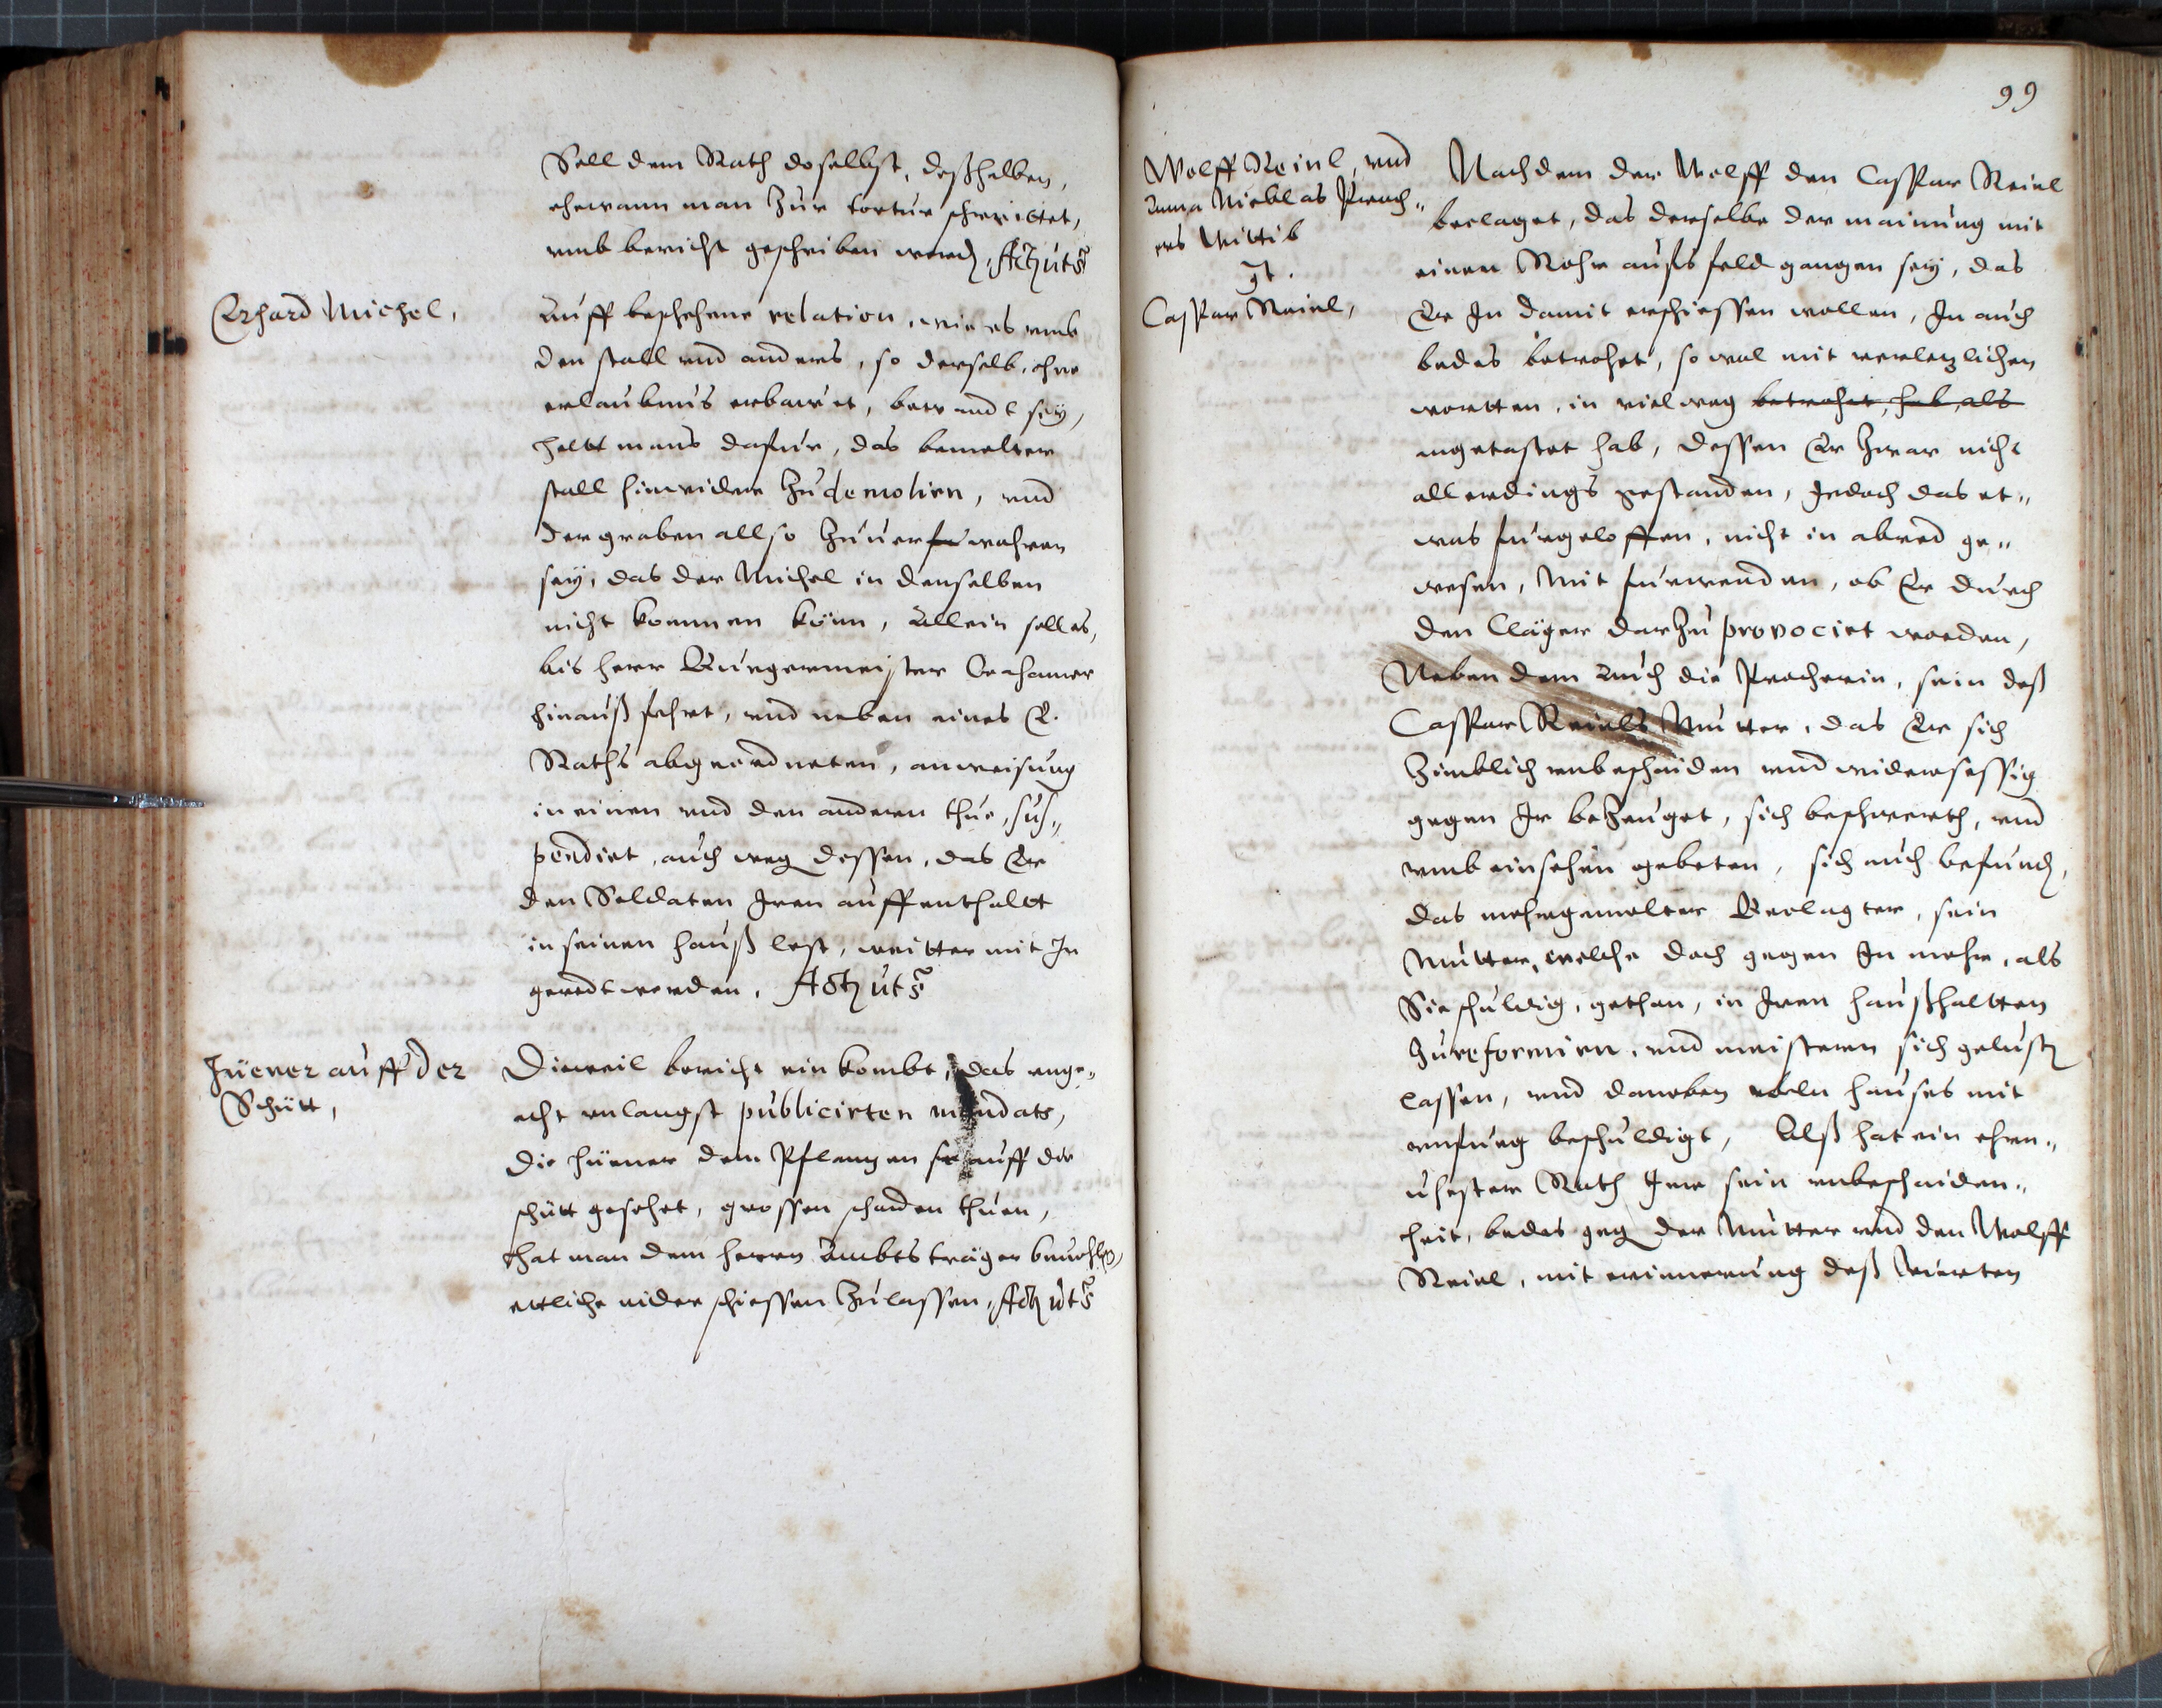 Soll dem Rath doselbst, deßhalben,
ehe wann man zur tortur schreittet,
vmb bericht geschriben werden, Act. ut s.
Erhard Michel,
Auff beschehene relation, wie es vmb
den stall vnd anders, so derselb, ohne
erlaubnus erbawet, bewandt sey,
helt mans dafur, das bemelter
stall hinwider zu demolirn, vnd
der graben allso zuuerwahren
sey, das der Michel in denselben
nicht kommen könn, Allein soll es,
bis herr Burgermeister
hinauß fehrt, vnd neben eines E.
Raths abgeordneten, anweisung
in einen vnd den anderen thue, sus-
pendirt, auch weg dessen, das Er
den Soldaten Iren auffenthalt
in seinen hauß lest, weitter mit Im
geredt werden, Act. ut s.
Hüener auff der
Schütt,
Dieweil bericht ein kombt, das vnge-
acht vnlangst publicirten mandats,
die hüener dem Pflanzen so auff der
schütt gesehet, grossen schaden thuen,
hat man dem herrn Ambtstrager beuohlen,
ettliche nider schiessen zulassen, Act. ut s.
99
Wolff Reinl, vnd
Anna Nicklas Prach-
ers Wittib
gt.
Caspar Reinl,
Nachdem der Wolff den Caspar Reinl
beclaget, das derselbe der mainung mit
einen Rohr aufs feld gangen sey, das
Er In damit erschiessen wollen, In auch
bedes betrohet, so wol mit verlezlichen
wortten, in viel weg betrohet, hab, als
angetastet hab, dessen Er zwar nicht
allerdings gestanden, Jedoch das et-
was furgeloffen, nicht in abred ge-
wesen, Mit furwenden, ob Er durch
den Cläger darzu provocirt worden,
Neben dem Auch die Pracherin, sein deß
Caspar Reinls Mutter, das Er sich
zimblich vnbescheiden vnd widersessig
gegen Ir bezeuget, sich beschwerth, vnd
vmb einsehen gebeten, sich auch befunden,
das mehrgemelter Beclagter, sein
Mutter, welche doch gegen In mehr, als
Sie schuldig, gethan, in Iren haußhaltten
zu reformirn, vnd meistern sich gelusten
lassen, vnd daneben vbeln hauses mit
beschuldigt, Alß hat ein ehrn-
uhester Rath Ime sein vnbescheiden-
heit, bedes geg der Mutter vnd den Wolff
Reinl, mit erinnerung deß vierten